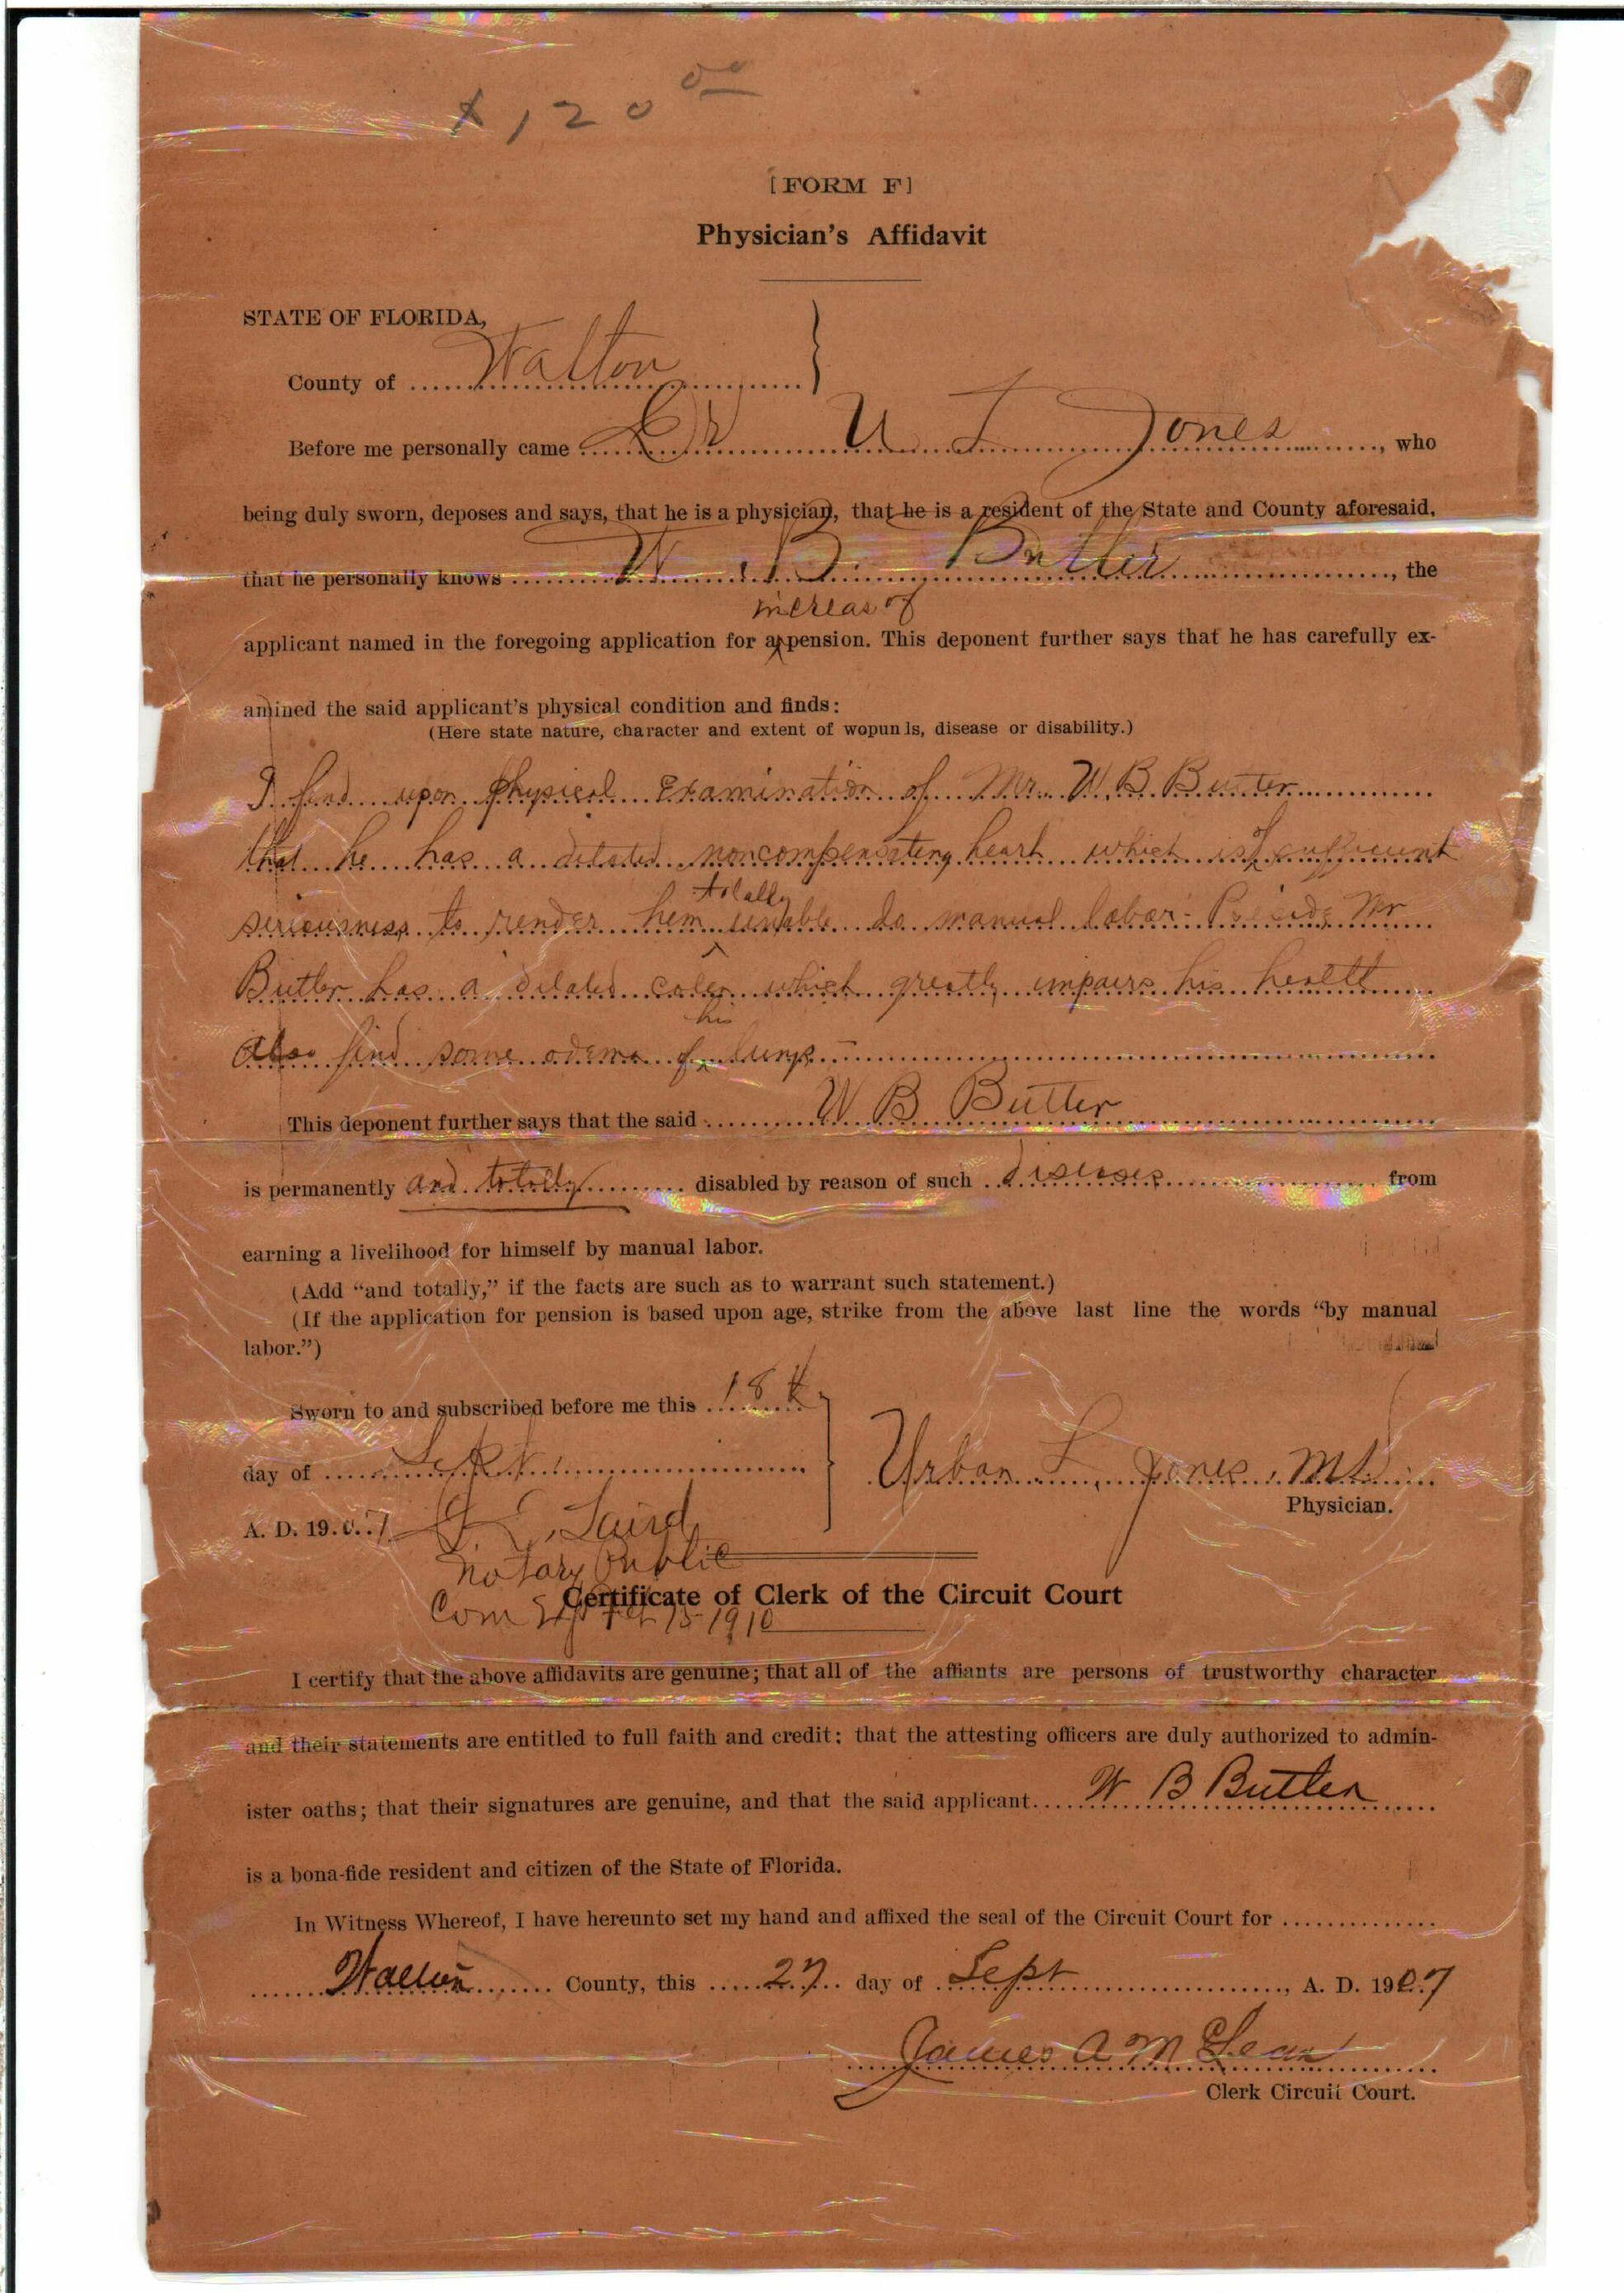 x 120 00
[FORM F]
Physician's Affidavit
STATE OF FLORIDA,
County of Walton
Before me personally came Dr U L Jones, who
being duly sworn, deposes and says, that he is a physician, that he is a resident of the State and County aforesaid,
that he personally knows W. B. Butler, the
increas of
applicant named in the foregoing application for a pension. This deponent further says that he has carefully ex-
amined the said applicant's physical condition and finds:
(Here state nature, character and extent of wopunls, disease or disability.)
I find upon physical examination of Mr. W. B. Butler
that he has a dilated noncompensating heart which is of sufficient
totally
seriousness to render him unable do manual labor - Mr
Butler has a dilated which greatly impairs his health
his
also find some odema of lungs -
This deponent further says that the said W B Butler
is permanently and totally disabled by reason of such diseases from
earning a livelihood for himself by manual labor.
(Add "and totally," if the facts are such as to warrant such statement.)
(If the application for pension is based upon age, strike from the above last line the words "by manual
labor.")
Sworn to and subscribed before me this 18th
day of Sept.
Urban L. Jones, M.D.
Physician.
A. D. 1907 Laird
Notary Public
Certificate of Clerk of the Circuit Court
Com 15-1910
I certify that the above affidavits are genuine; that all of the affiants are persons of trustworthy character
and their statements are entitled to full faith and credit; that the attesting officers are duly authorized to admin-
ister oaths; that their signatures are genuine, and that the said applicant W B Butler
is a bona-fide resident and citizen of the State of Florida.
In Witness Whereof, I have hereunto set my hand and affixed the seal of the Circuit Court for
Walton County, this 27 day of Sept, A. D. 1907
James A McLean
Clerk Circuit Court.